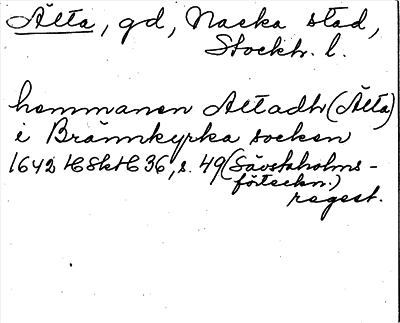 Älta, gd, Nacka stad,
Stockh. l.
hemmanen Altadh (Älta)
i Brännkyrka socken
1642 HSkH 36, s. 49 (Sävstaholms-
förteckn.)
regest.